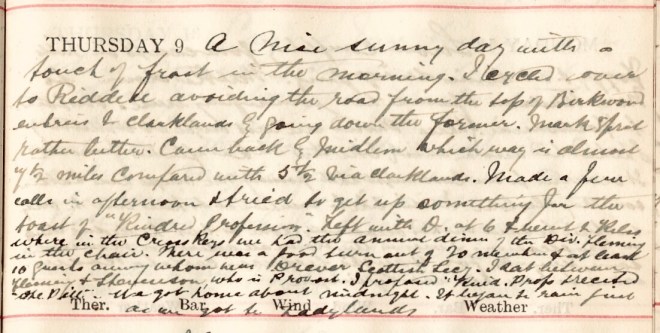 THURSDAY 9 A nice sunny day with a
touch of frost in the morning. I cycled over
to Riddell avoiding the road from the top of Birkwood
to Clarklands by going down the former. Mark
rather better. Came back by Midlem which way is almost
7½ miles compared with 5½ via Clarklands. Made a few
calls in afternoon & tried to get up something for the
toast of "Kindred Profession". Left with D. at 6 & went to Kelso
where in the Cross Keys we had the annual dinner of the Div. Fleming
in the chair. There was a good turn out of 30 members & at least
10 guests among whom were Drever Scottish Secy. I sat between
Fleming & who is Provost. I proposed "Kind. Profs
We got home about midnight. It began to rain just
Ther. Bar. Wind Weather
as we got to Ladylands